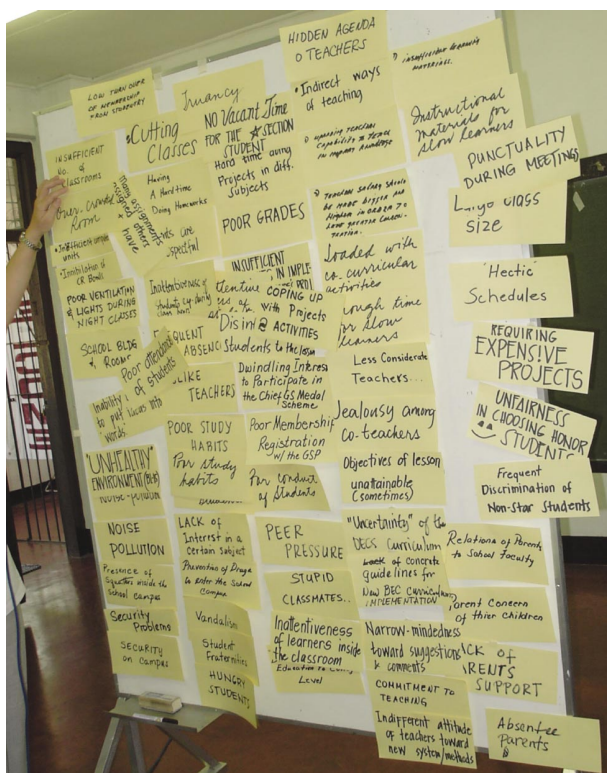 LOW TURN OVER
OF MEMBERSHIP
FROM STUDENTRY
INSUFFICIENT
No. of
classrooms
Over-crowded
Room
units
POOR VENTILATION
& LIGHTS DURING
NIGHT CLASSES
SCHOOL BLDG
& Rooms
Poor attendance
of students
Inability
to put
words
"UNHEALTHY"
ENVIRONMENT
NOISE
POLLUTION
Presence of
Squatters inside the
school campus
Security
Problems
SECURITY
on Campus
Truancy
Cutting
Classes
Having
A Hard time
Doing Homeworks
Many assignments
assigned
& others
have
Inattentiveness of
students
LIKE
TEACHERS
POOR STUDY
HABITS
Poor study
habits
LACK OF
Interest in a
Certain Subject
Prevention of Drugs
to Enter the School
Campus
Vandalism
Student
Fraternities
HUNGRY
STUDENTS
NO Vacant Time
FOR THE ☆ SECTION
STUDENT
Hard time
Projects in diff.
Subjects
POOR GRADES
INSUFFICIENT
IN
COPING UP
with Projects
& ACTIVITIES
Students to the lesson
Dwindling Interest
to Participate in
the Chief GS Medal
Scheme
Poor Membership
Registration
w/ the GSP
Poor conduct
of Students
PEER
PRESSURE
STUPID
CLASSMATES..
Inattentiveness
of learners inside
the classroom
Level
HIDDEN AGENDA
O TEACHERS
Indirect ways
of teaching
Upgrading teachers
Capability to teach
Teachers salary should
be made bigger and
Higher in order to
Loaded with
co-curricular
activities
time
for slow
learners
Less Considerate
Teachers...
Jealousy among
Co-teachers
Objectives of lesson
unattainable
(sometimes)
"Uncertainty" of the
DECS Curriculum
Lack of concrete
guidelines for
New BEC Curriculum
IMPLEMENTATION
Narrow-mindedness
toward suggestions
& comments
COMMITMENT TO
TEACHING
Indifferent attitude
of teachers toward
new system/methods
Insufficient learning
materials.
Instructional
materials for
slow learners
PUNCTUALITY
DURING MEETINGS
class
size
"Hectic"
Schedules
REQUIRING
EXPENSIVE
PROJECTS
UNFAIRNESS
IN CHOOSING HONOR
STUDENTS
Frequent
Discrimination of
Non-Star Students
Relations of Parents
to School Faculty
Concern
of thier Children
OF
SUPPORT
Absentee
Parents